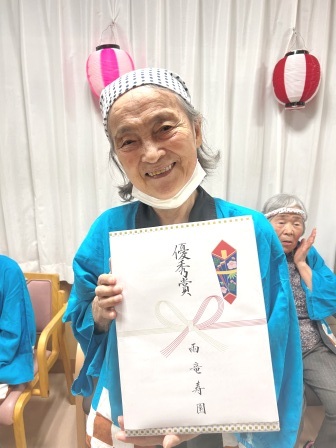 優秀賞
雨竜寿園